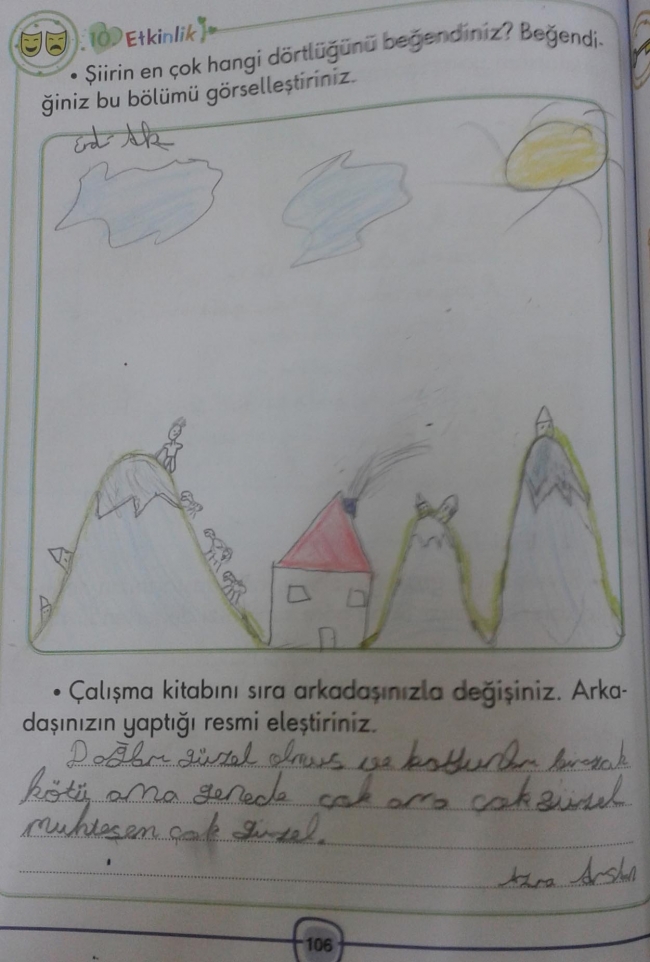 10. Etkinlik
• Şiirin en çok hangi dörtlüğünü beğendiniz? Beğendi-
ğiniz bu bölümü görselleştiriniz.
• Çalışma kitabını sıra arkadaşınızla değişiniz. Arka-
daşınızın yaptığı resmi eleştiriniz.
Dağlar güzel olmuş ve koyunlar birazcık
kötü ama genede çok ama çok güzel
muhteşen çok güzel.
Azra Arslan
106